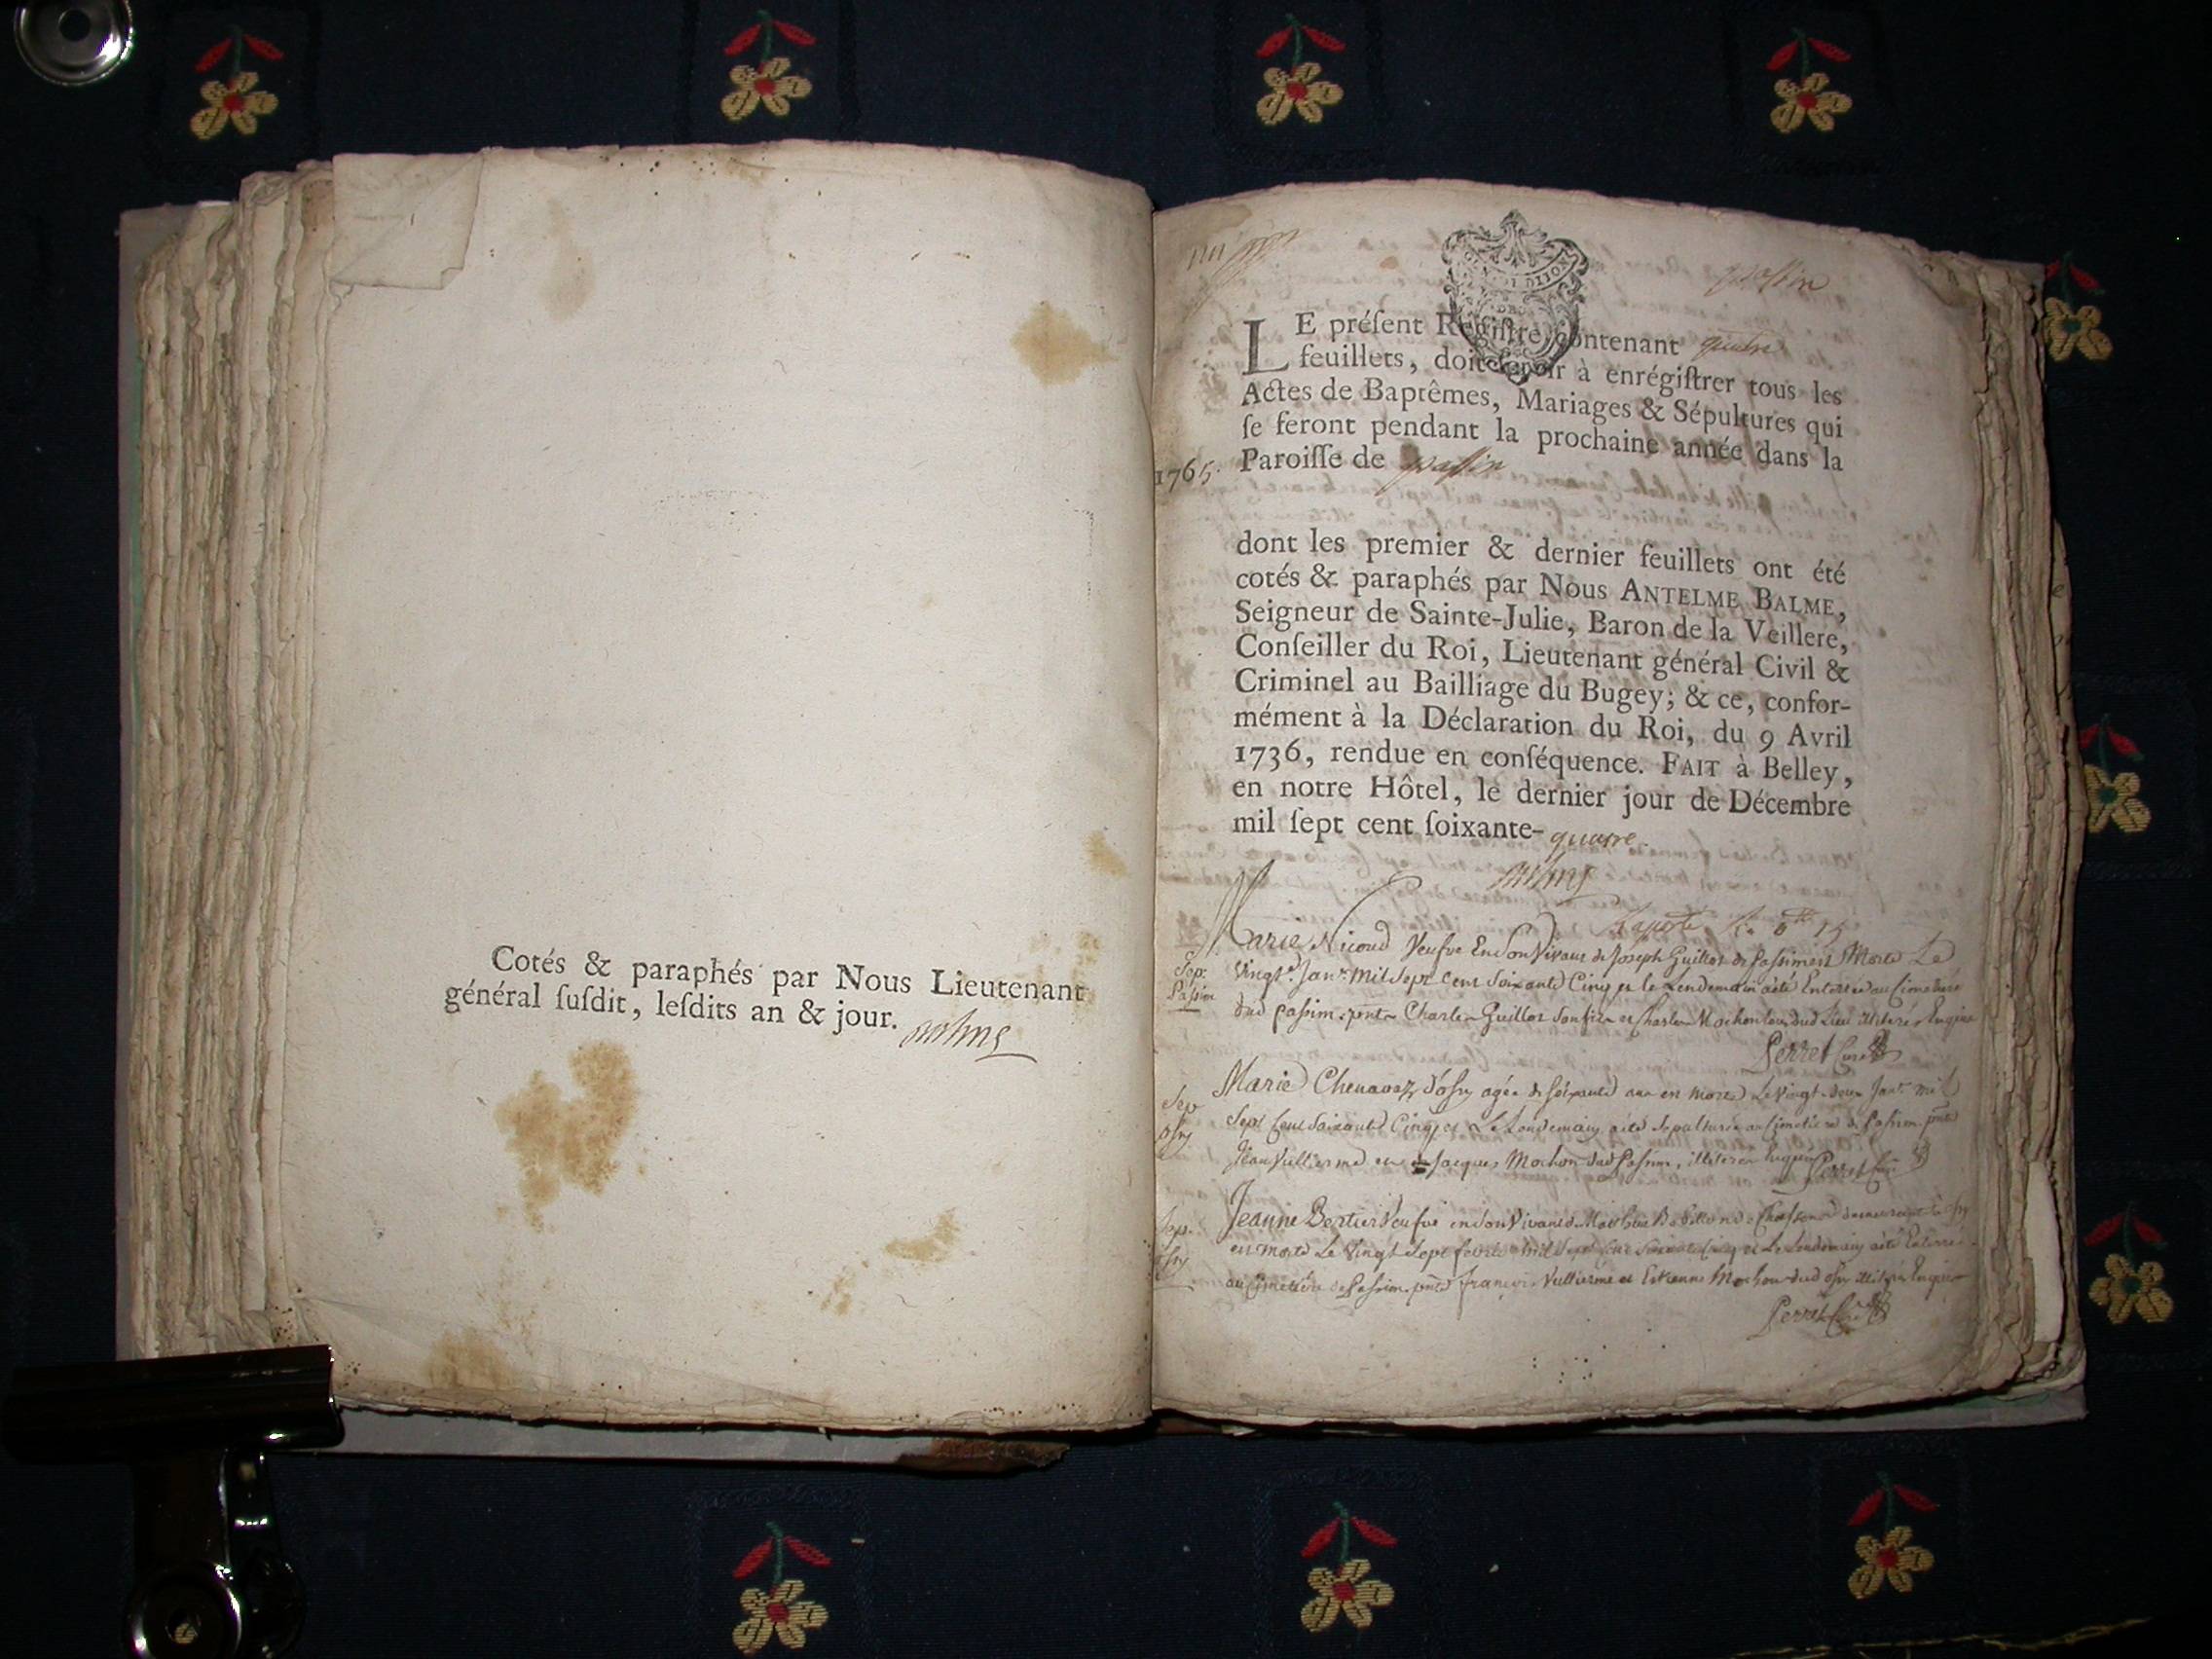 Cotés & paraphés par Nous Lieutenant
général ſuſdit, leſdits an & jour.
passin
LE préſent Regiſtre contenant quatre
feuillets, doit ſervir à enrégiſtrer tous les
Actes de Baptêmes, Mariages & Sépultures qui
ſe feront pendant la prochaine année dans la
1765. Paroiſſe de passin
dont les premier & dernier feuillets ont été
cotés & paraphés par Nous ANTELME BALME,
Seigneur de Sainte-Julie, Baron de la Veillere,
Conſeiller du Roi, Lieutenant général Civil &
Criminel au Bailliage du Bugey; & ce, confor-
mément à la Déclaration du Roi, du 9 Avril
1736, rendue en conſéquence. FAIT à Belley,
en notre Hôtel, le dernier jour de Décembre
mil ſept cent ſoixante-quatre.
Marie Nicoud Veufve En Son Vivant de Joseph Guillot de Passim est Morte Le
Sep. Vingt Janr. Mil Sept Cent Soixante Cinq et le Lendemain a été Enterrée au Cimetiere
Passim dud passim, pnts Charle Guillot Son fils et Charle Mochon tous dud Lieu illiterés Enquis
Perret Curé
Marie Chenavaz d'ôsy agée de Soixante ans est Morte Le Vingt deux Janr. mil
Sep. Sept Cent Soixante Cinq et Le Lendemain a été Sepulturée au Cimetiere de Passim pnts
Jean Vullierme et Jacques Mochon dud Passim, illiterés Enquis Perret Curé
Sep. Jeanne Bertier Veufve en Son Vivant
est Morte Le Vingt Sept fevrier Mil Sept Cent Soixante Cinq et Le Lendemain a été Enterrée
au Cimetiere de Passim pnts françois Vullierme et Estienne Mochon dud osy illiterés Enquis
Perret Curé